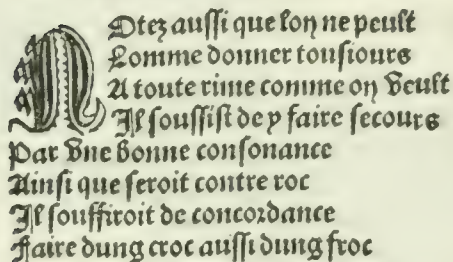 NOtez aussi que lon ne peult
Comme donner tousiours
A toute rime comme on veult
Il souffist de y faire secours
Par vne bonne consonance
Ainsi que feroit contre roc
Il souffiroit de concordance
Faire dung croc aussi dung froc